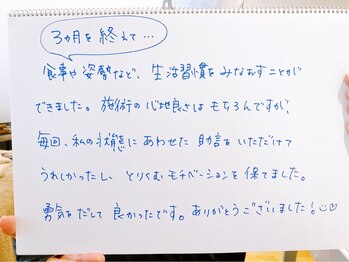 3ヵ月を終えて…
食事や姿勢など、生活習慣をみなおすことが
できました。施術の心地良さはもちろんですが、
毎回、私の状態にあわせた助言をいただけて
うれしかったし、とりくむモチベーションを保てました。
勇気をだして良かったです。ありがとうございました!